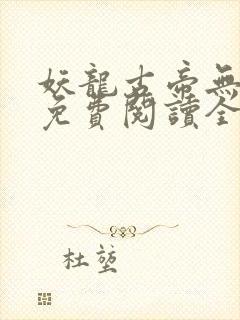 妖龍古帝無
免費閱讀全
杜莛